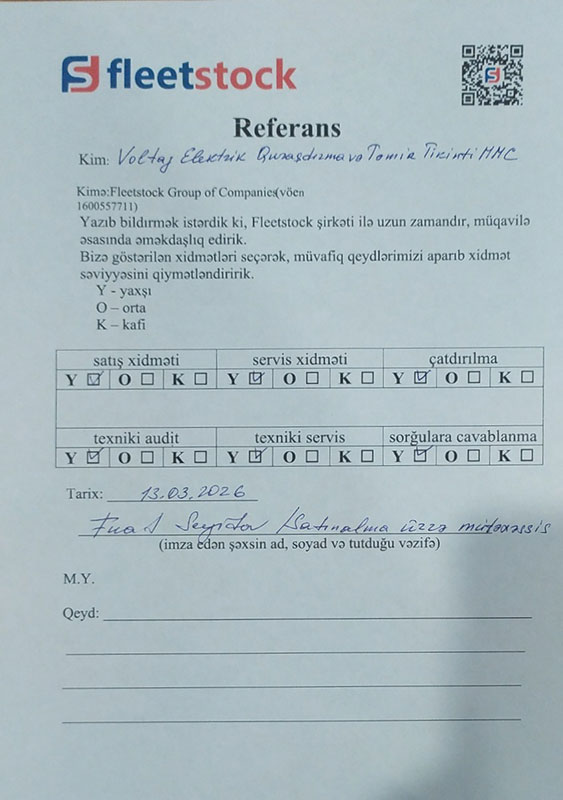 fleetstock
Referans
Kim: Voltaj Elektrik Quraşdırma və Təmir Tikinti MMC
Kimə:Fleetstock Group of Companies(vöen
1600557711)
Yazıb bildirmək istərdik ki, Fleetstock şirkəti ilə uzun zamandır, müqavilə
əsasında əməkdaşlıq edirik.
Bizə göstərilən xidmətləri seçərək, müvafiq qeydlərimizi aparıb xidmət
səviyyəsini qiymətləndiririk.
Y - yaxşı
O – orta
K – kafi
satış xidməti servis xidməti çatdırılma
Y ☑ O ☐ K ☐ Y ☑ O ☐ K ☐ Y ☑ O ☐ K ☐
texniki audit texniki servis sorğulara cavablanma
Y ☑ O ☐ K ☐ Y ☑ O ☐ K ☐ Y ☑ O ☐ K ☐
Tarix: 13.03.2026
Fuad Seyidov Satınalma üzrə mütəxəssis
(imza edən şəxsin ad, soyad və tutduğu vəzifə)
M.Y.
Qeyd: